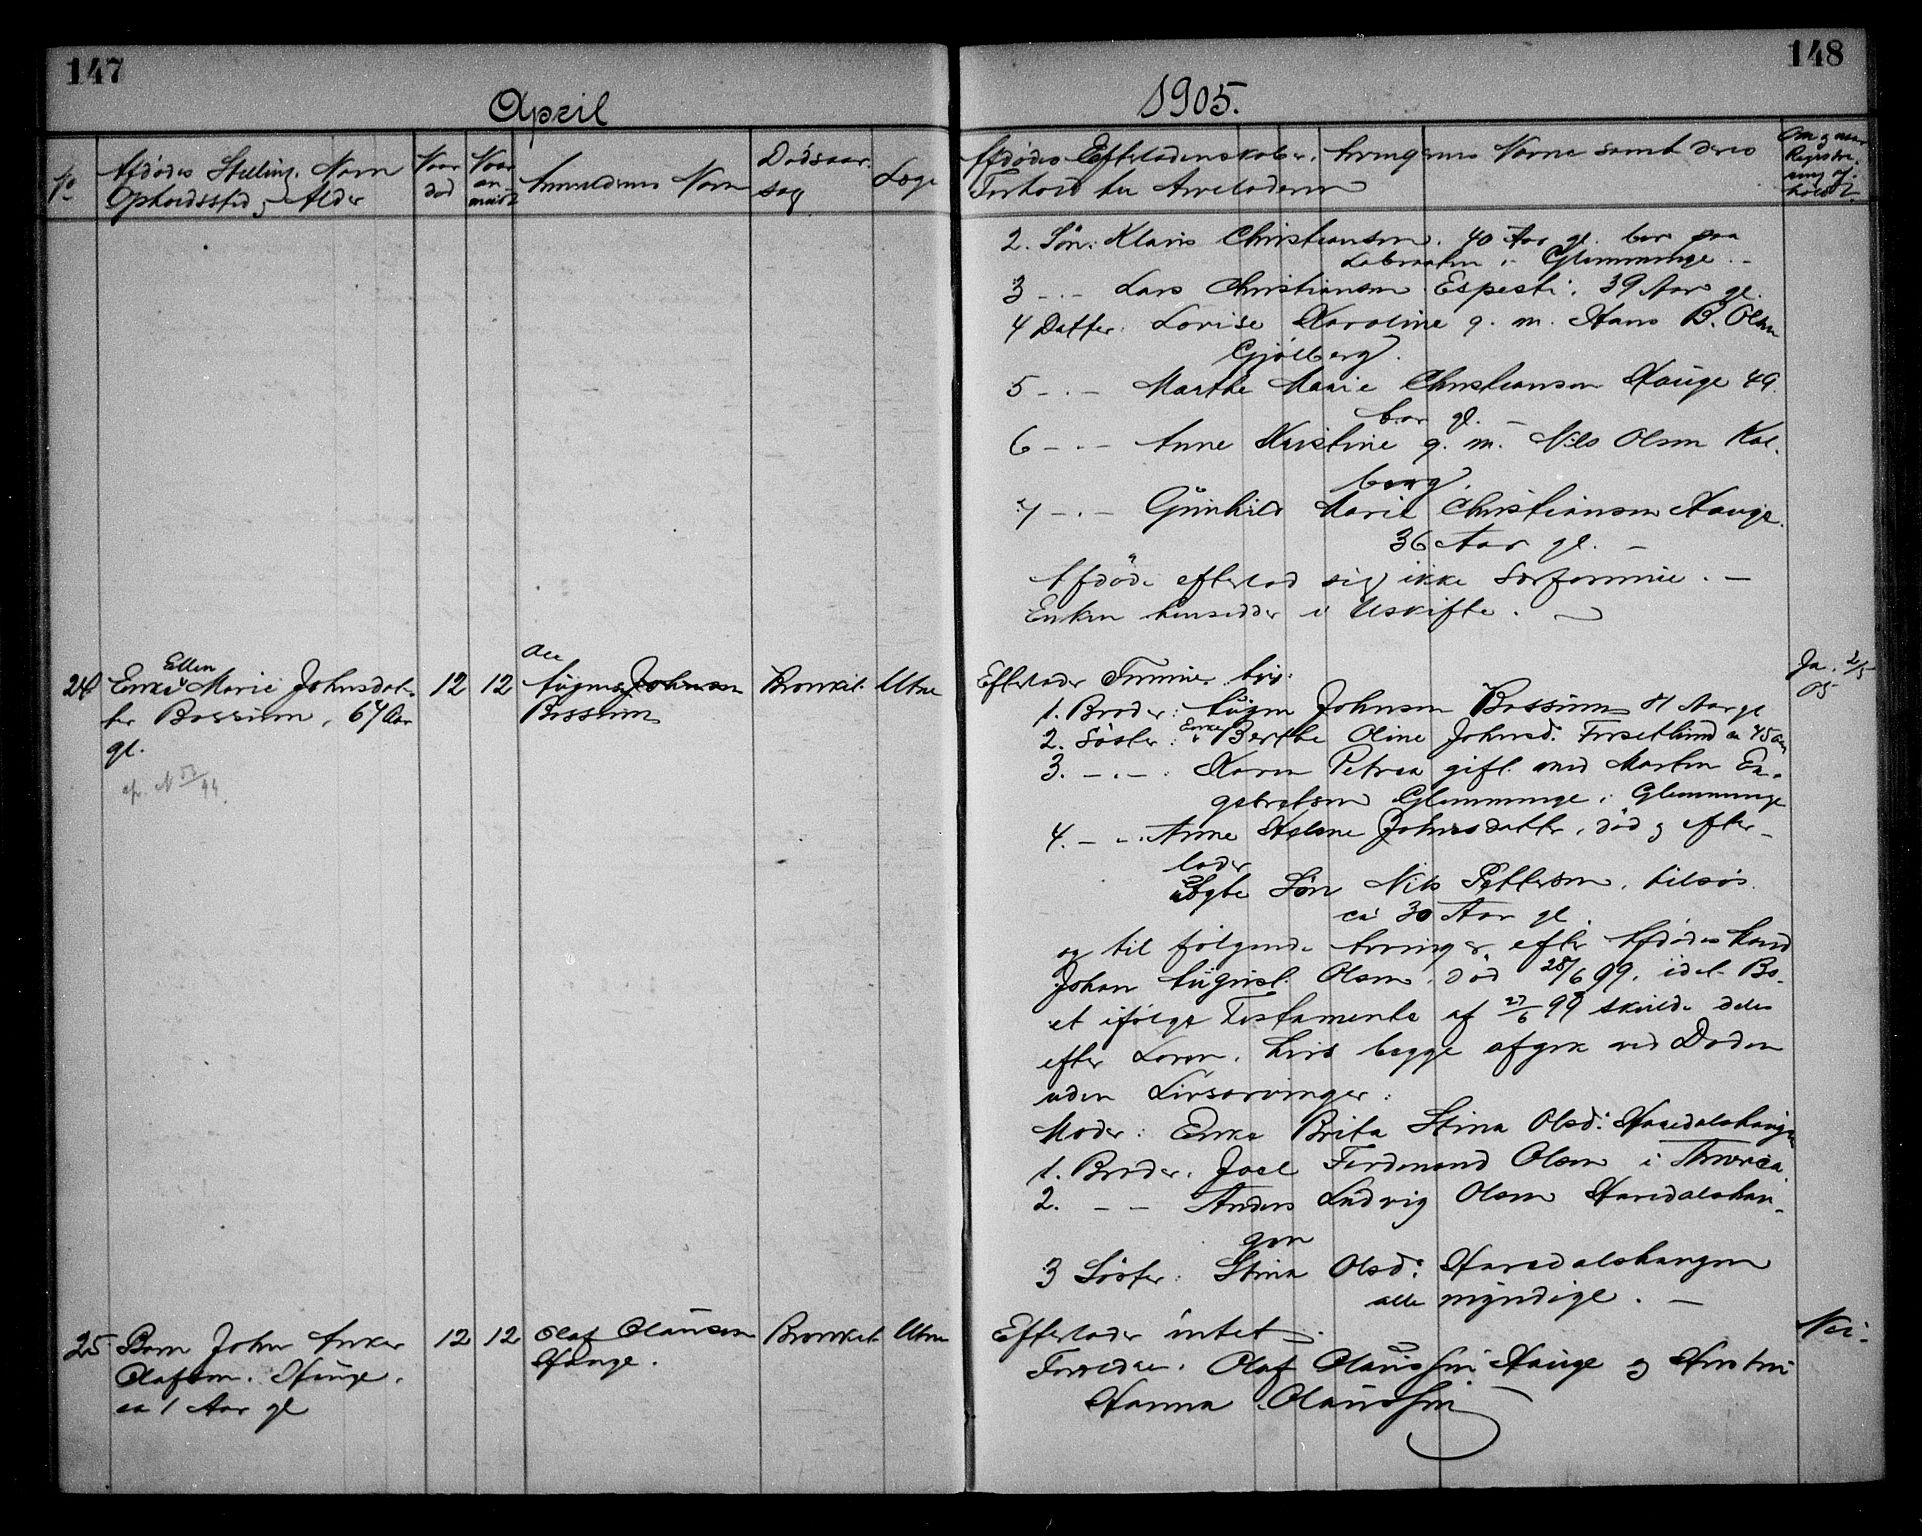 147
148
April
1905.
No
Afdødes Stilling, Navn
Opholdssted og Alder
Naar
død
Naar
an-
meldt
Anmelderens Navn
Dødsaar-
sag
Læge
Afdødes Efterladenskaber. Arvingernes Navne samt deres
Forhold til Arveladeren
Om og naar
Registre-
ring af-
holdt.
2. Søn: Klaus Christiansen. 40 Aar gl. bor paa
i Glemminge. -
3 -.- Lars Christiansen Espesti. 39 Aar gl.
4 Datter: Lovise Karoline g. m. Hans B. Olsen
Gjølberg.
5 -.- Marthe Marie Christiansen Hauge 49.
Aar gl. -
6 -.- Anne Kristine g. m. Nils Olsen Kal-
berg.
7 -.- Gunhild Marie Christiansen Hauge.
36 Aar gl. -
Afdøde efterlod sig ikke Særformue. -
Enken hensidder i Uskifte. -
24
Enke Ellen Marie Johnsdat-
ter Bossum, 67 Aar
gl.
12
12
August Johnsen
Bossum
Bronkit.
Utne
Efterlader Formue.
1. Broder: August Johnsen Bossum 51 Aar gl
2. Søster: Enke Berthe Oline Johnsd. Torsetlund ca 45 Aar
3. -.- : Karen Petrea gift med Martin En-
gebretsen Glemminge i Glemminge
4. - -. Anne Helene Johnsdatter, død og efter-
lader
uægte Søn Nils Pettersen, tilsøs.
ca 30 Aar gl.
og til følgende Arvinger efter Afdødes Mand
Johan August Olsen, død 28/6 99, idet Bo-
et ifølge Testamente af 27/6 99 skulde deles
efter Loven, hvis begge afgik ved Døden
uden Livsarvinger:
Moder: Enke Brita Stina Olsd:
1. Broder. Joel Ferdinand Olsen i Amerika
2. - - Anders Ludvig Olsen Haredalshan-
gen
3 Søster: Stina Olsd: Haredalshangen
alle myndige. -
Ja. 2/5
05
25
Barn John Anker
Olafsen. Hauge.
ca 1 Aar gl
12
12
Olaf Olaussen
Hauge.
Bronkit
Utne
Efterlader intet.
Forældre. Olaf Olaussen Hauge og Hustru
Hanna Olaussen
Nei.